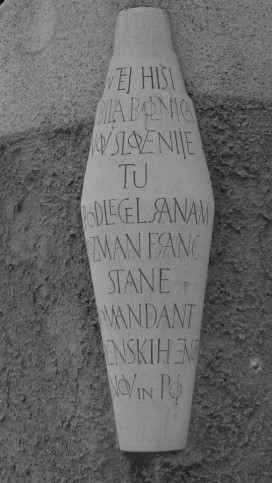 V TEJ HIŠI
BILA BOLNICA
NOV SLOVENIJE
TU
PODLEGEL RANAM
ROZMAN FRANC
STANE
KOMANDANT
SLOVENSKIH ENOT
NOV IN PO